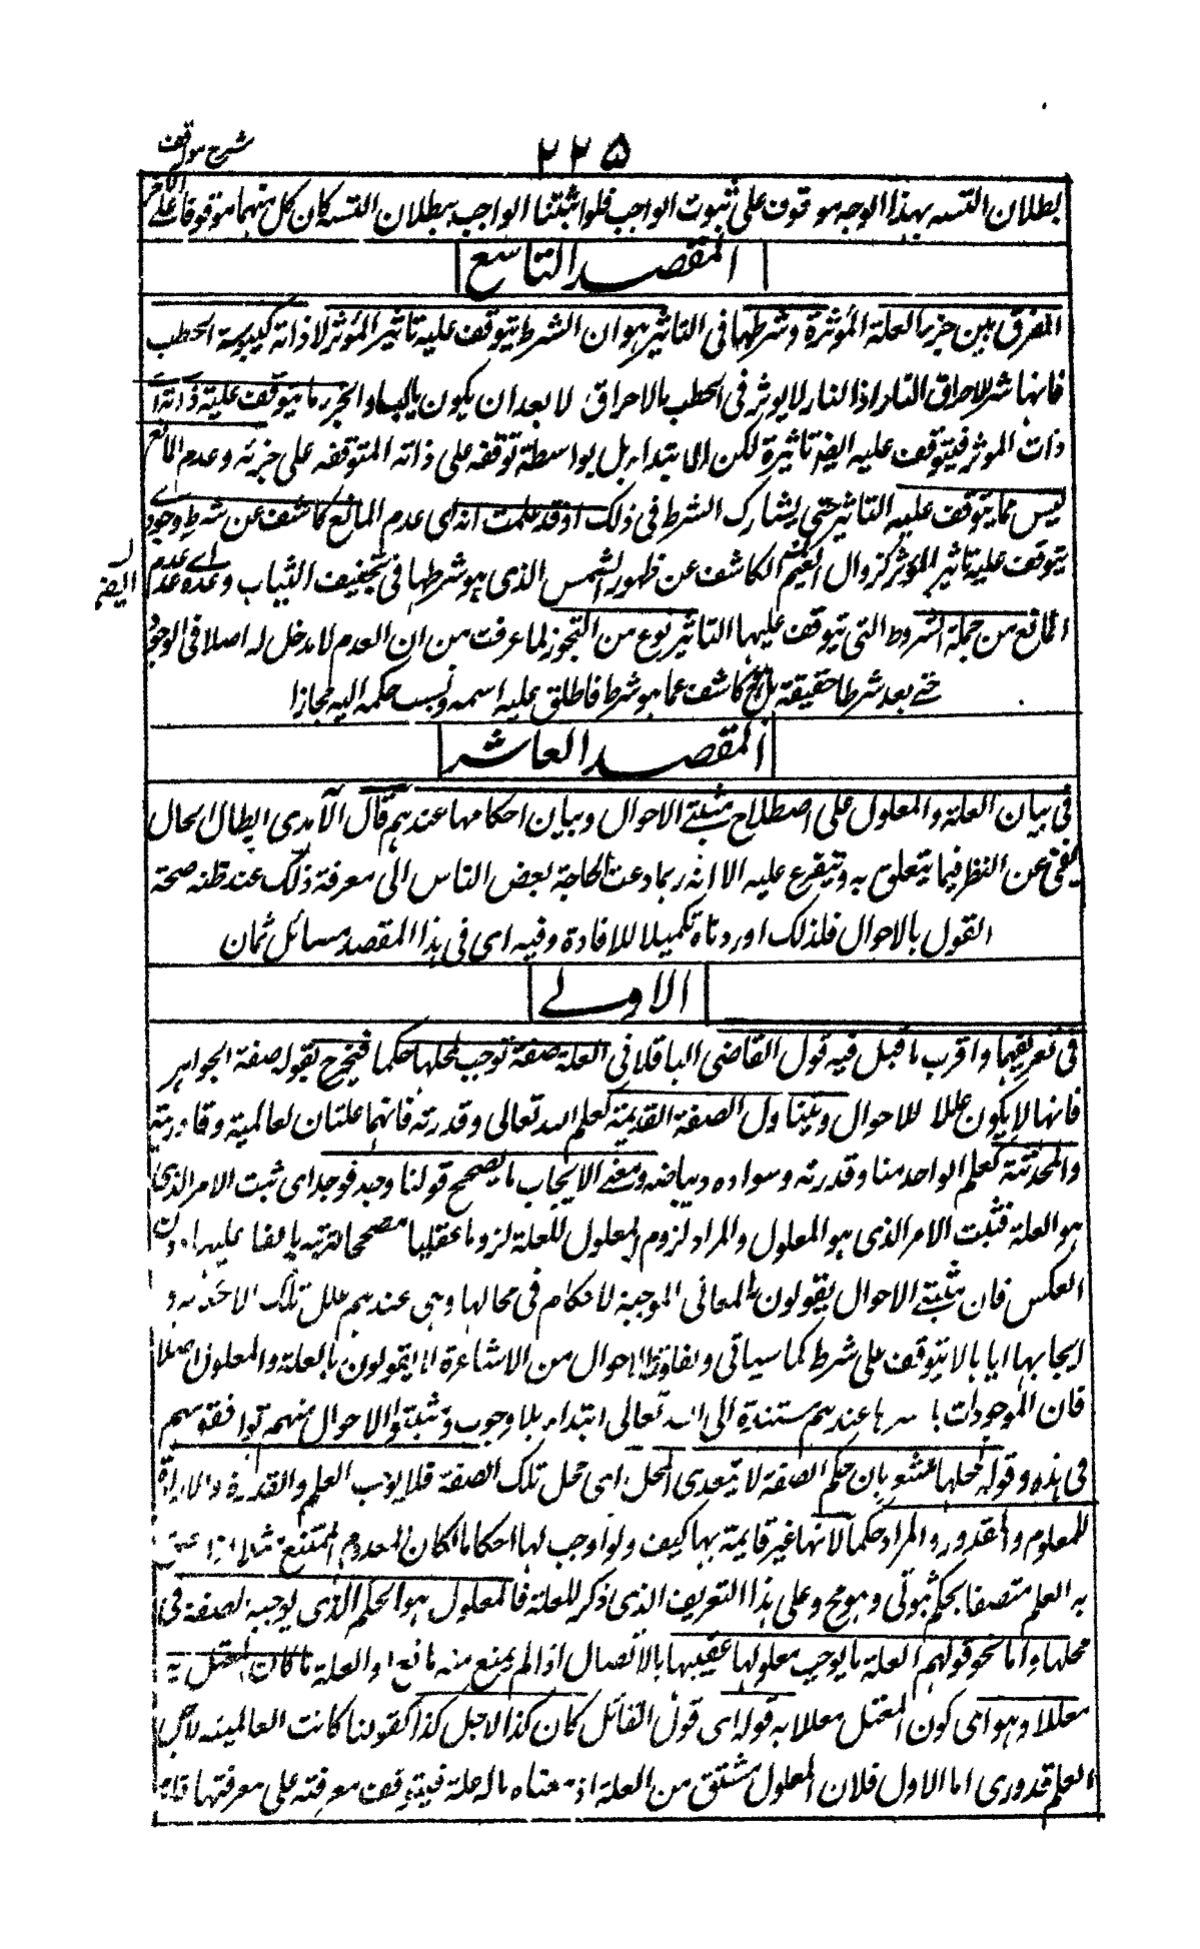 شرح مواقف
٢٢٥
بطلان التسه بهذا الوجه موقوف على ثبوت الواجب فلو اثبتنا الواجب ببطلان التسه كان كل منهما موقوفا على الآخر
المقصد التاسع
الفرق بين جزء العلة المؤثرة وشرطها فى التاثير هو ان الشرط يتوقف عليه تاثير المؤثر لا ذاته كيبوسة الحطب
فانها شرط لاحراق النار اذ النار لا يوثر فى الحطب بالاحراق الا بعد ان يكون يابسا والجزء ما يتوقف عليه ذاته اى
ذات الموثر فيتوقف عليه ايضا تاثيره لكن لا ابتداء بل بواسطة توقفه على ذاته المتوقفه على جزئه وعدم المانع
ليس مما يتوقف عليه التاثير حتى يشارك الشرط فى ذلك اذ قد علمت انه اى عدم المانع كاشف عن شرط وجودى
يتوقف عليه تاثير المؤثر كزوال الغيم الكاشف عن ظهور الشمس الذى هو شرطها فى تجفيف الثياب وعده اى عدم
المانع من جملة الشروط التى يتوقف عليها التاثير نوع من التجوز لما عرفت من ان العدم لا مدخل له اصلا فى الوجود
حتى يعد شرطا حقيقة بل هو كاشف عما هو شرط فاطلق عليه اسمه ونسب حكمه اليه مجازا
المقصد العاشر
فى بيان العلة والمعلول على اصطلاح مثبتى الاحوال وبيان احكامها عندهم قال الآمدى ابطال الحال
يغنى عن النظر فيما يتعلق به ويتفرع عليه الا انه ربما دعت الحاجة بعض الناس الى معرفة ذلك عند ظنه صحة
القول بالاحوال فلذلك اوردناه تكميلا للافادة وفيه اى فى هذا المقصد مسائل ثمان
الاولى
فى تعريفهما واقرب ما قيل فيه قول القاضى الباقلانى العلة صفة توجب لمحلها حكما فيخرج بقوله صفة الجواهر
فانها لا يكون عللا للاحوال ويتناول الصفة القديمة كعلم الله تعالى وقدرته فانهما علتان لعالمية وقادريته
والمحدثة كعلم الواحد منا وقدرته وسواده وبياضه ومعنى الايجاب ما يصحح قولنا وجد فوجد اى ثبت الامر الذى
هو العلة فثبت الامر الذى هو المعلول والمراد لزوم المعلول للعلة لزوما عقليا مصححا لترتبه بالفاء عليها دون
العكس فان مثبتى الاحوال يقولون بالمعانى الموجبة لاحكام فى محالها وهى عندهم علل تلك الاحكام و
ايجابها اياها لا يتوقف على شرط كما سياتى ونفاة الاحوال من الاشاعرة لا يقولون بالعلة والمعلول اصلا
فان الموجودات باسرها عندهم مستندة الى الله تعالى ابتداء بلا وجوب ومثبتوا الاحوال منهم توافقوسهم
فى هذه وقوله لمحلها يشعر بان حكم الصفة لا يتعدى المحل اى محل تلك الصفة فلا يوجب العلم والقدرة والارادة
للمعلوم والمقدور والمراد حكما لانها غير قايمة بها كيف ولو اوجب لها احكاما لكان المعدوم الممتنع مثلا اذا تعلق
به العلم متصفا بحكم ثبوتى وهو مح وعلى هذا التعريف الذى ذكر للعلة فالمعلول هو الحكم الذى يوجبه الصفة فى
محلها واما نحو قولهم العلة ما يوجب معلولها عقيبها بالاتصال اذا لم يمنع منه مانع او العلة ما كان المعتل به
معللا وهو اى كون المعتل معللا به قوله اى قول القائل كان كذا لاجل كذا كقولنا كانت العالمية لاجل
العلم فدورى اما الاول فلان المعلول مشتق من العلة اذ معناه ما له علة فيتوقف معرفته على معرفتها فانه